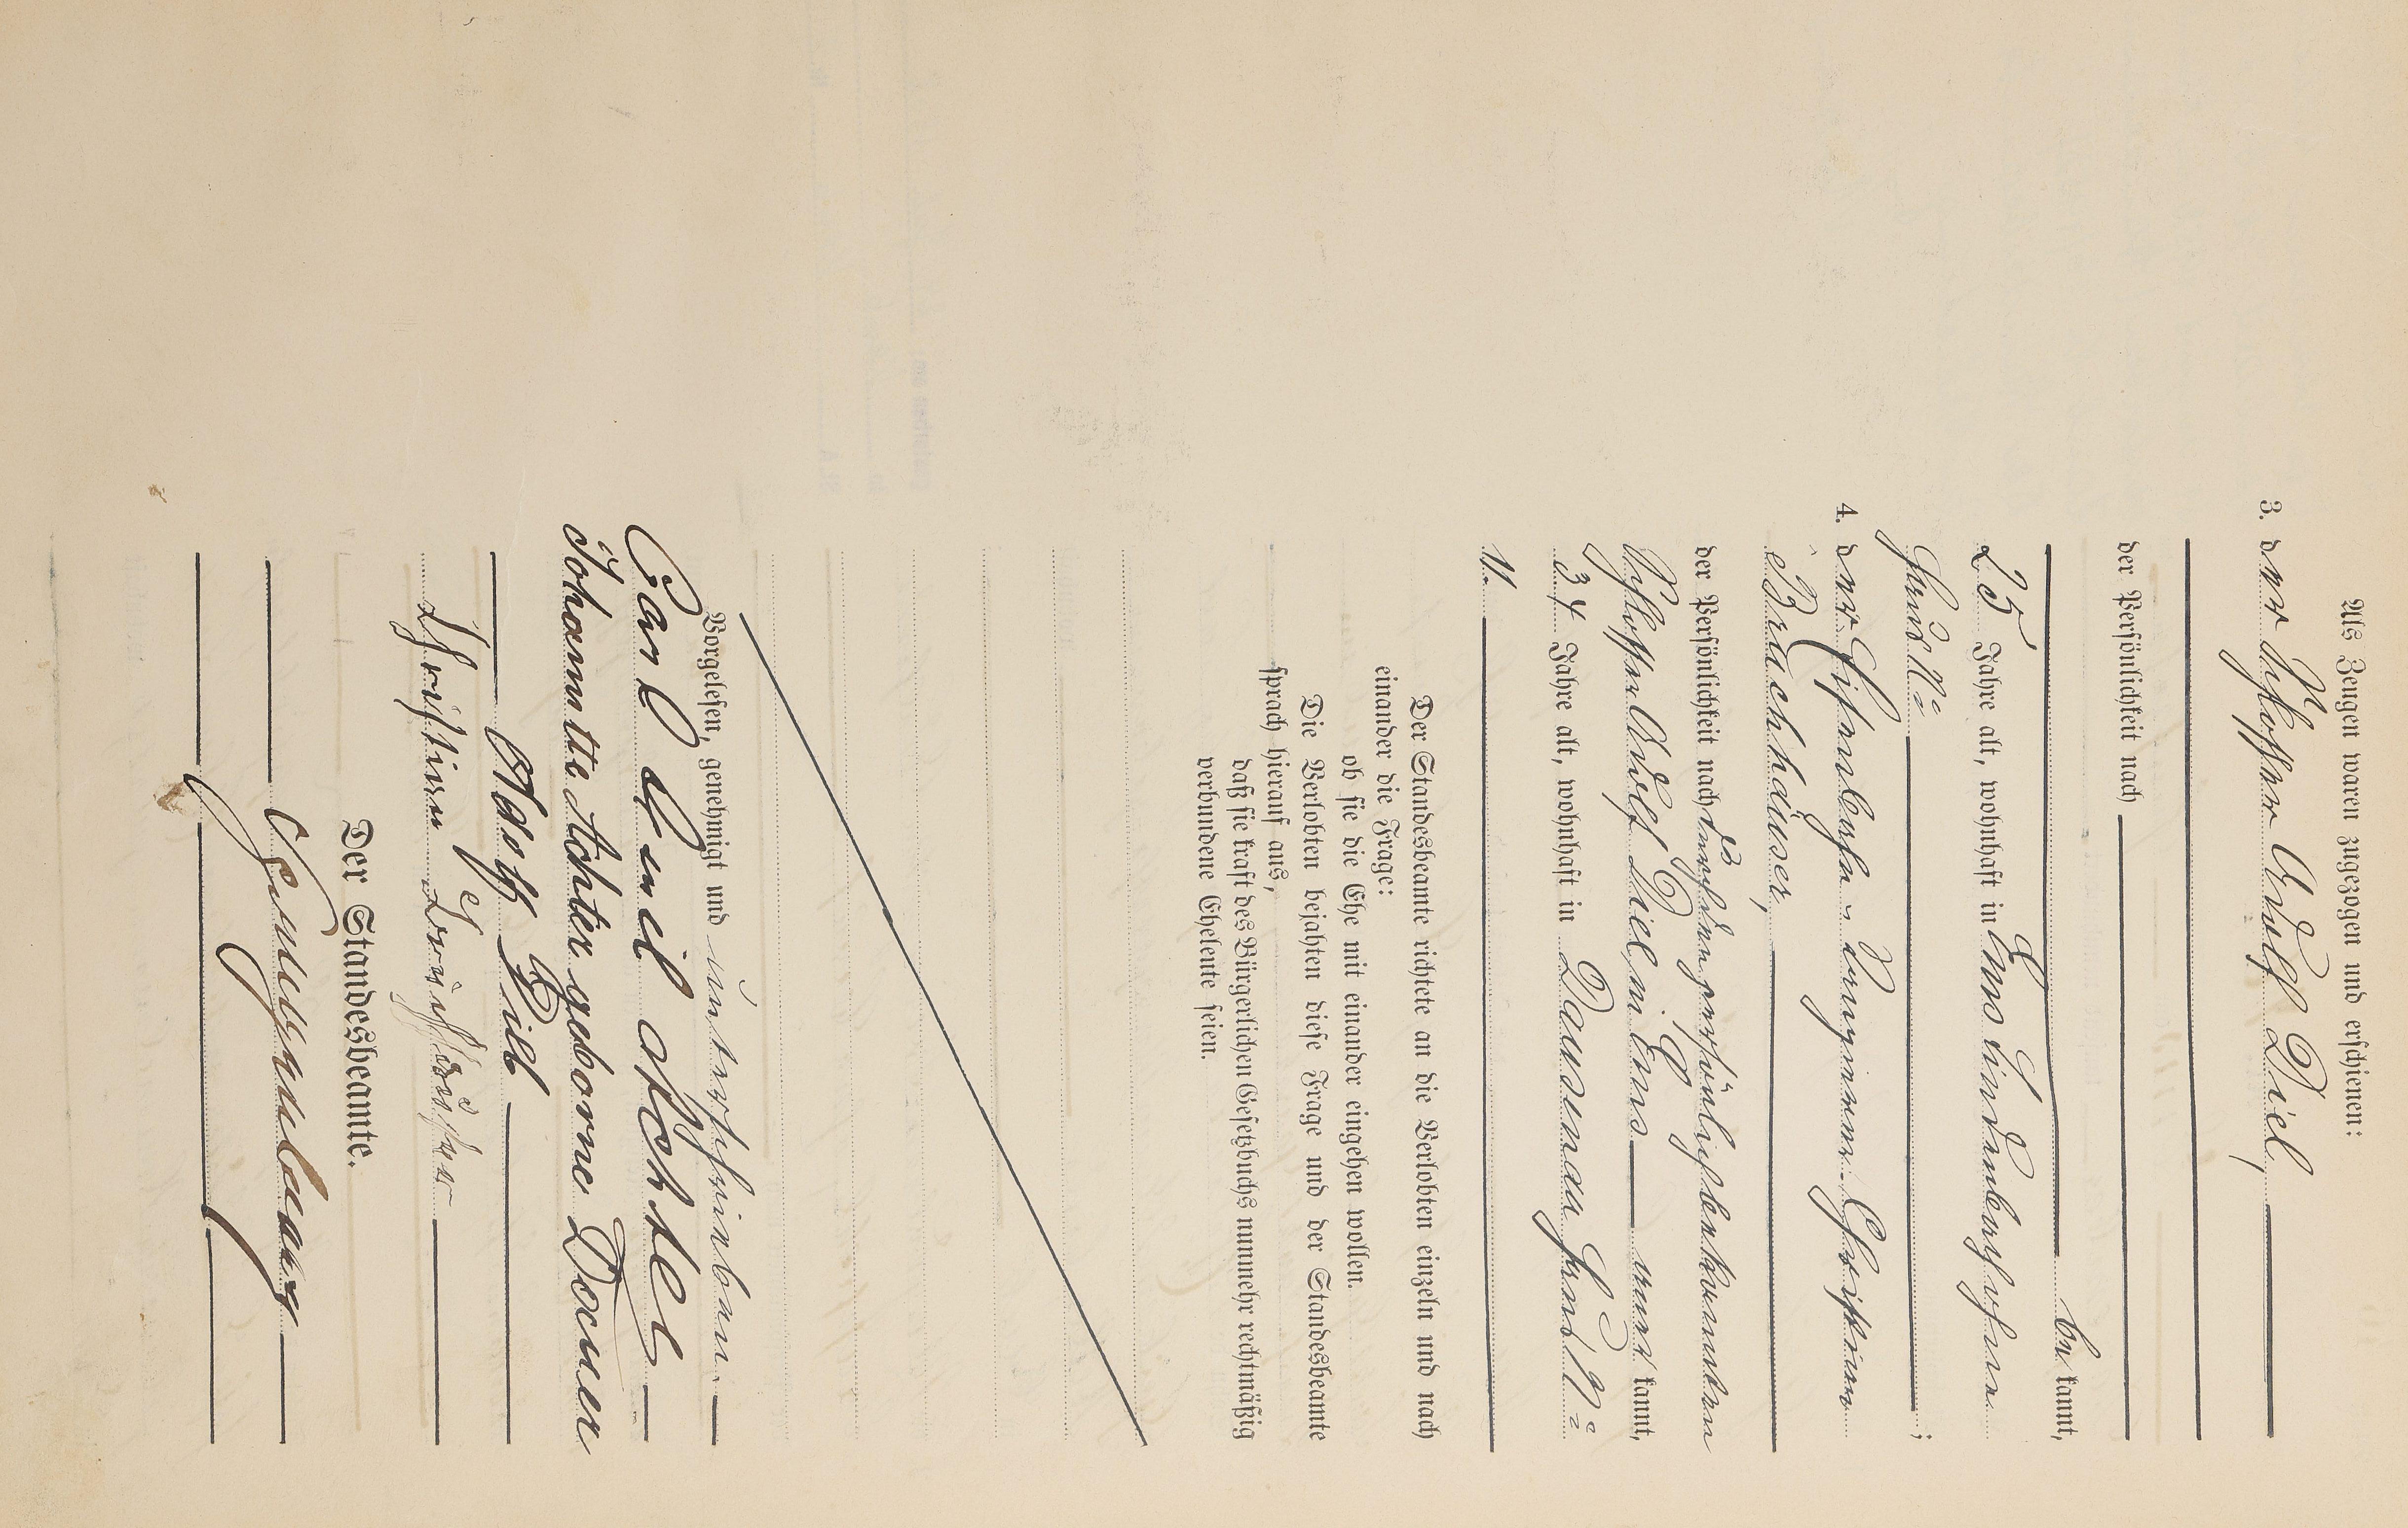 Als Zeugen waren zugezogen und erschienen:
3. der Schlosser Adolf Diel,
der Persönlichkeit nach
be kannt,
25 Jahre alt, wohnhaft in Ems Lindenbach ohne
Haus No ;
4. der Eisenbahn-Bremser Christian
Bruchhäuser,
der Persönlichkeit nach durch den persönlich bekannten
Schlosser Adolf Diel in Ems aner kannt,
34 Jahre alt, wohnhaft in Dausenau Haus No
11.
Der Standesbeamte richtete an die Verlobten einzeln und nach
einander die Frage:
ob sie die Ehe mit einander eingehen wollen.
Die Verlobten bejahten diese Frage und der Standesbeamte
sprach hierauf aus,
daß sie kraft des Bürgerlichen Gesetzbuchs nunmehr rechtmäßig
verbundene Eheleute seien.
Vorgelesen, genehmigt und unterschrieben.
Carl Emil Achter
Johannette Achter geborne
Adolf Diel
Christian
Der Standesbeamte.